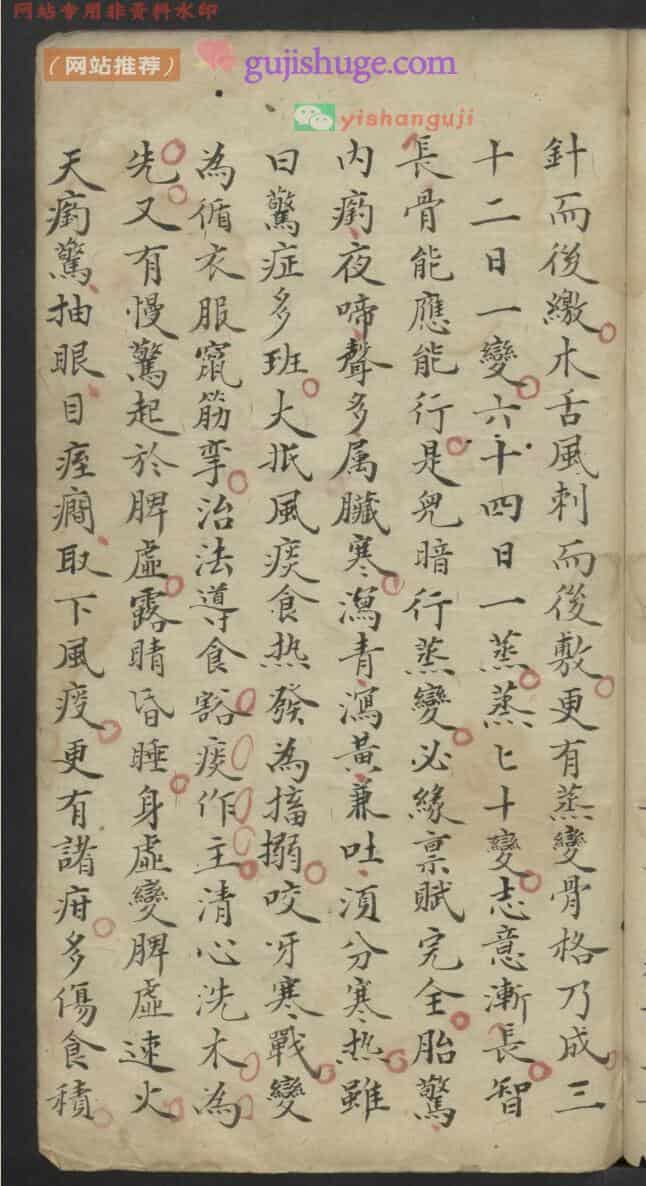 网站专用非资料水印
(网站推荐) gujishuge.com
yishanguji
針而後繳木舌風刺而後敷更有蒸變骨格乃成三
十二日一變六十四日一蒸蒸匕十變志意漸長智
長骨能應能行是兒暗行蒸變必緣禀賦完全胎驚
内瘹夜啼聲多属臟寒瀉青瀉黃兼吐湏分寒热雖
曰驚症多班大抵風痰食热發為搐搦咬牙寒戰變
為循衣服竄筋挛治法導食豁痰作主清心洗木為
先又有慢驚起於脾虛露睛昏睡身虛變脾虛速火
天瘹驚抽眼目痓癇取下風痰更有諸疳多傷食積